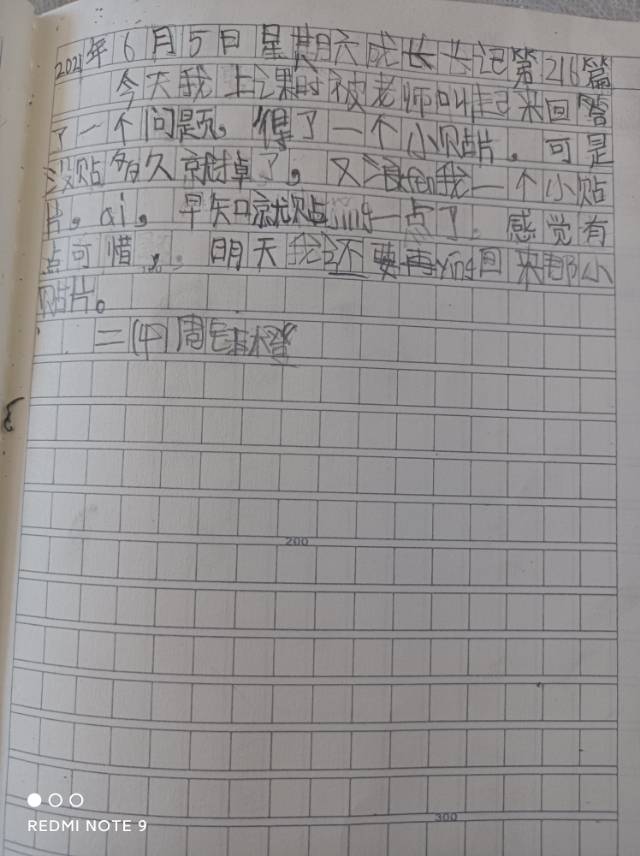 2021年6月5日星期六成长长记第216篇
今天我上课时被老师叫起来回答
了一个问题,得了一个小贴片。可是
没贴多久就掉了。又浪fen我一个小贴
片。ai,早知就贴jing一点了。感觉有
点可惜。明天我还要再ying回来那小
贴片。
二(4)周
200
300
REDMI NOTE 9